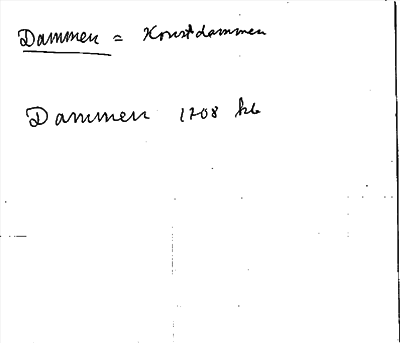 Dammen = Konstdammen
Dammen 1708 kb